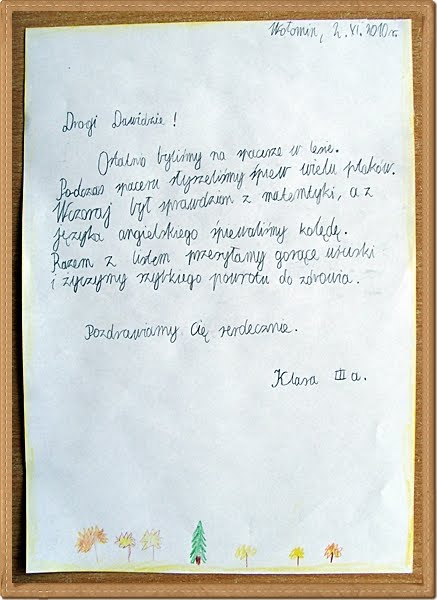 Wołomin, 2.XI.2010r.
Drogi Dawidzie!
Ostatnio byliśmy na spacerze w lesie.
Podczas spaceru słyszeliśmy śpiew wielu ptaków.
Wczoraj był sprawdzian z matemtyki, a z
języka angielskiego śpiewaliśmy kolędę.
Razem z listem przesyłamy gorące uściski
i życzymy szybkiego powrotu do zdrowia.
Pozdrawiamy Cię serdecznie.
Klasa III a.